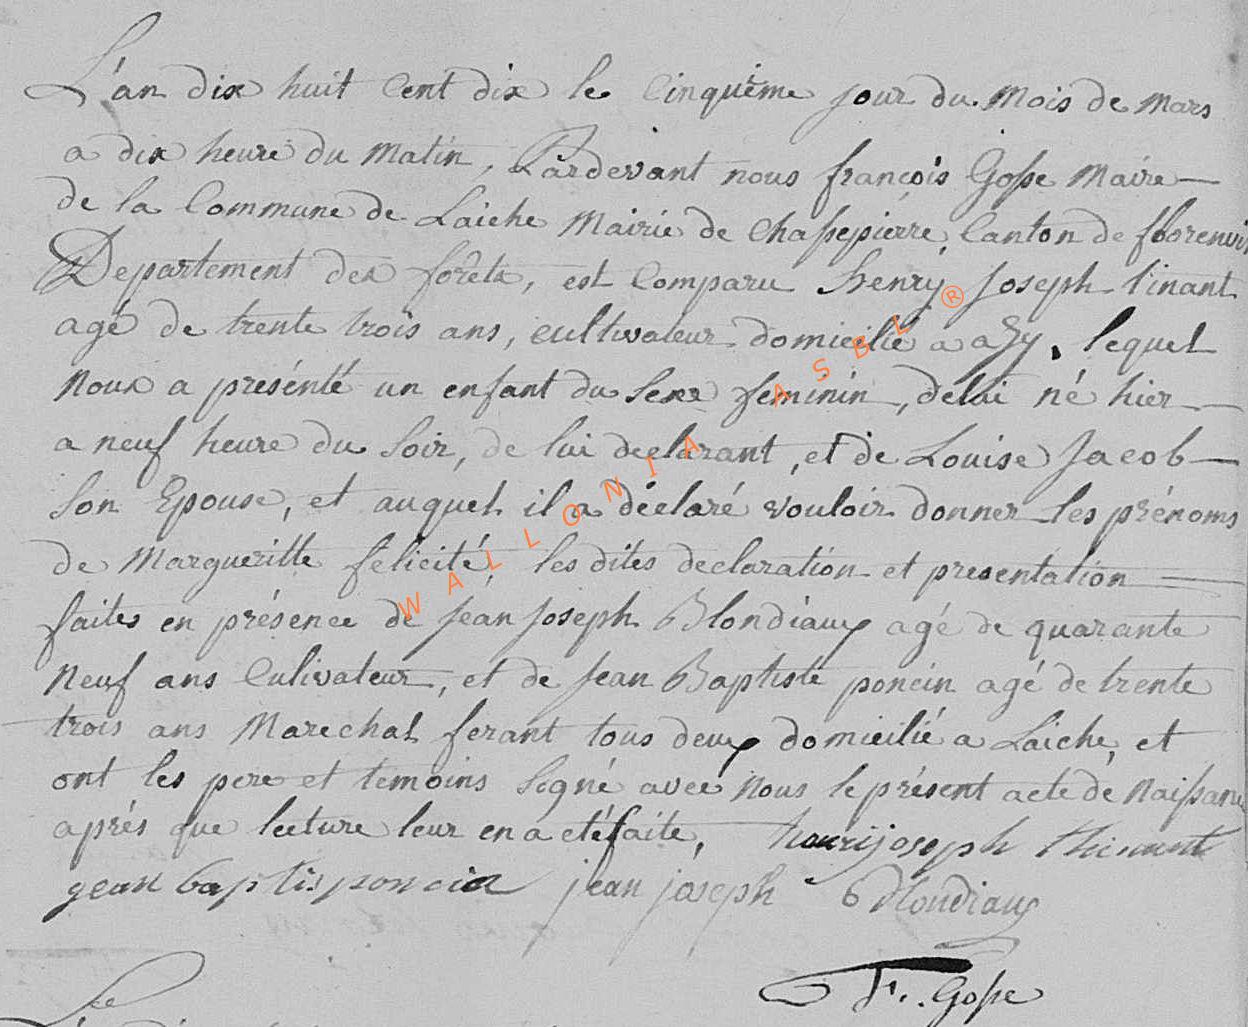 L'an dix huit Cent dix le Cinquième jour du Mois de Mars
a dix heure du Matin, Pardevant nous françois Gosse Maire
de la Commune de Laiche Mairie de Chassepierre, Canton de florenvil
Departement des forêts, est Comparu henry Joseph tinant
agé de trente trois ans, cultivateur domicilié a azy, lequel
Nous a présénté un enfant du Sexe feminin, de né hier
a neuf heure du Soir, de lui declarant, et de Louise Jacob
Son Epouse, et auquel il a déclaré vouloir donner les prénoms
de Margueritte félicité, les dites declaration et presentation
faites en présence de Jean Joseph Blondiaux agé de quarante
Neuf ans Culivateur, et de Jean Baptiste poncin agé de trente
trois ans Marechal ferant tous deux domicilié a Laiche, et
ont les pere et temoins Signé avec Nous le présent acte de Naissance
après que lecture leur en a eté faite, henrijoseph thinant
gean baptis poncin jean joseph blondiaux
F. Gosse
WALLONIA ASBL ®